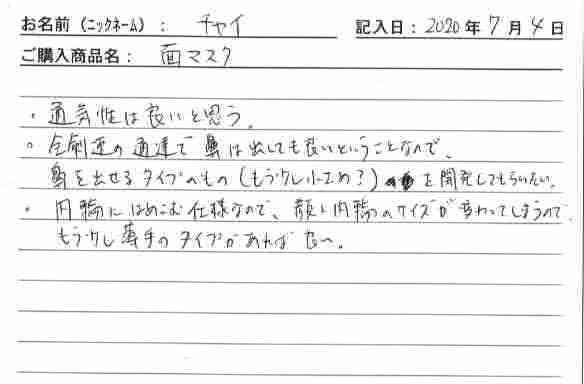 お名前（ニックネーム）： チャイ 記入日：2020年7月4日
ご購入商品名： 面マスク
・通気性は良いと思う。
・全剣連の通達で鼻は出しても良いということなので、
鼻を出せるタイプのもの（もう少し小さめ？）を開発してもらいたい。
・内輪にはめこむ仕様なので、顔と内輪のサイズが変わってしまうので
もう少し薄手のタイプがあれば良い。